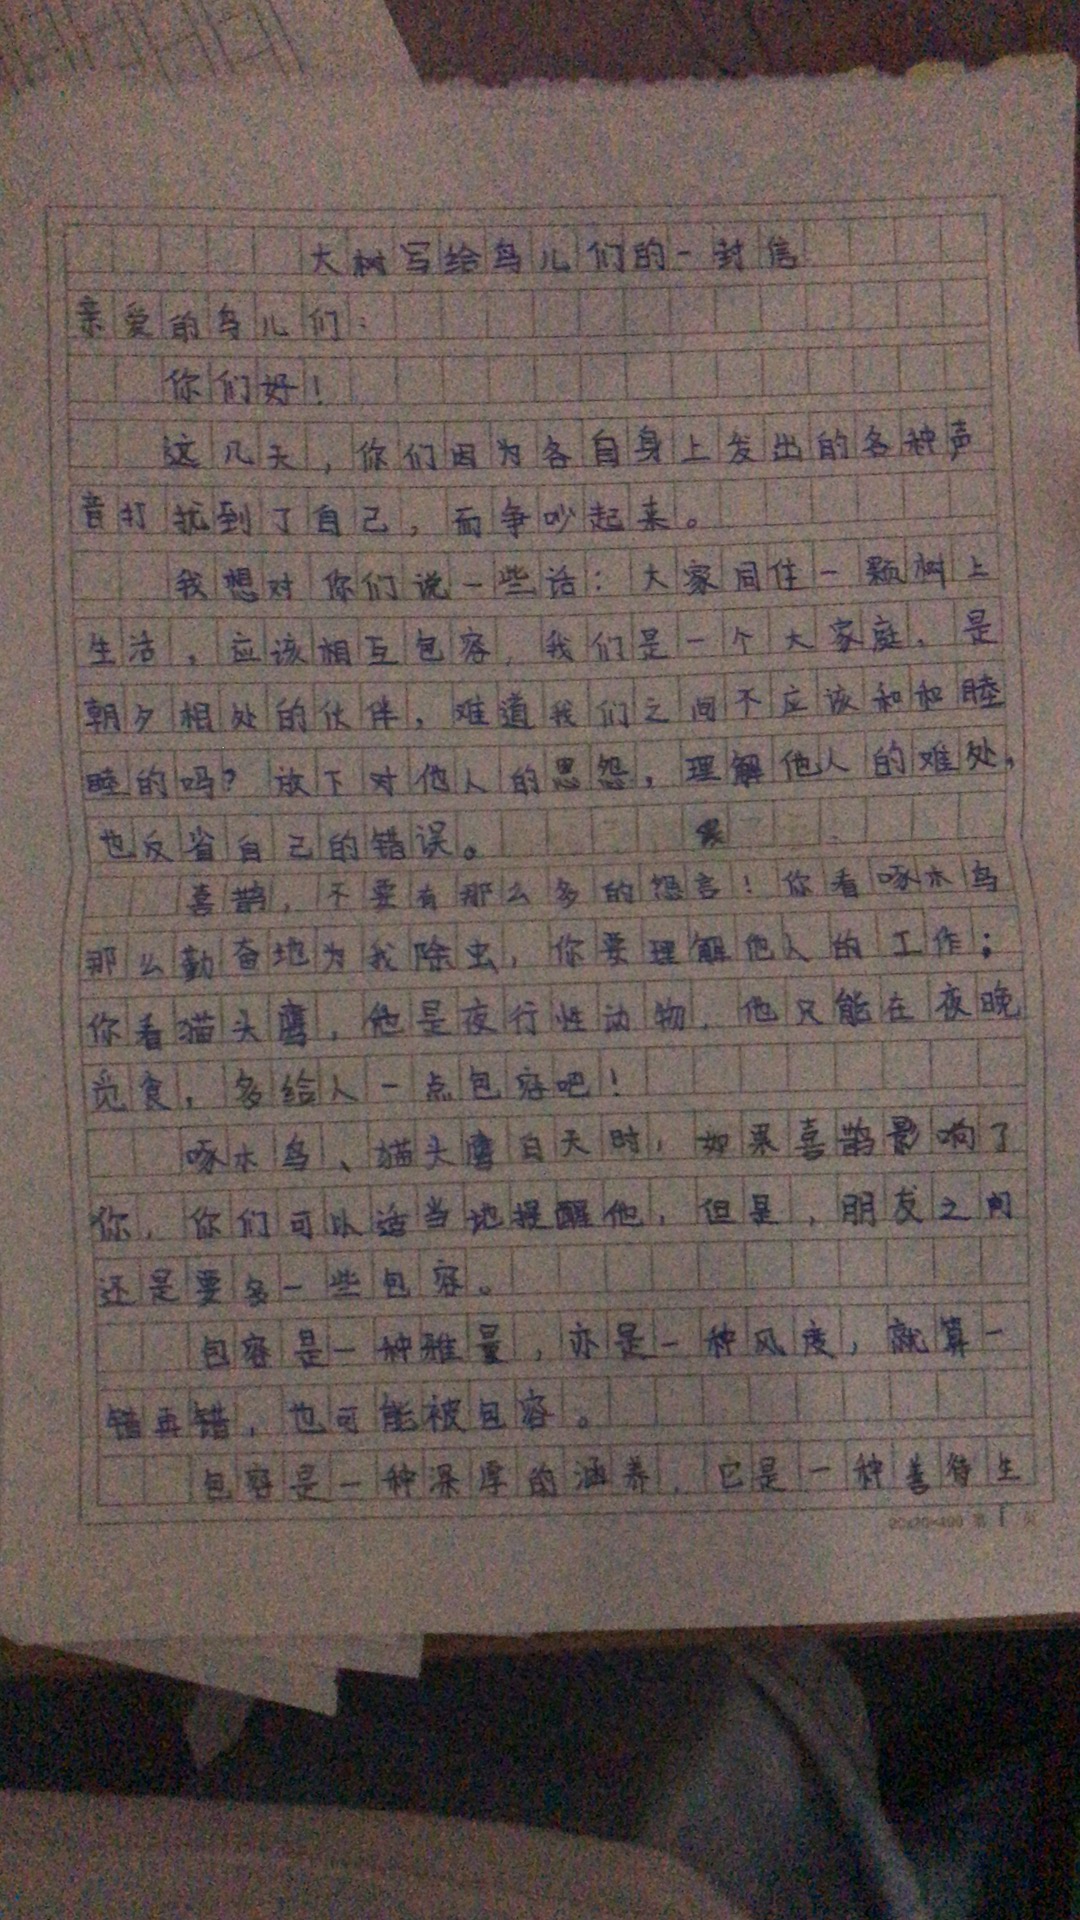 大树写给鸟儿们的一封信
亲爱的鸟儿们：
你们好！
这几天，你们因为各自身上发出的各种声
音打扰到了自己，而争吵起来。
我想对你们说一些话：大家同住一颗树上
生活，应该相互包容，我们是一个大家庭，是
朝夕相处的伙伴，难道我们之间不应该和和睦
睦的吗？放下对他人的恩怨，理解他人的难处，
也反省自己的错误。
喜鹊，不要有那么多的怨言！你看啄木鸟
那么勤奋地为我除虫，你要理解他人的工作；
你看猫头鹰，他是夜行性动物，他只能在夜晚
觅食，多给人一点包容吧！
啄木鸟、猫头鹰白天时，如果喜鹊影响了
你，你们可以适当地提醒他，但是，朋友之间
还是要多一些包容。
包容是一种雅量，亦是一种风度，就算一
错再错，也可能被包容。
包容是一种深厚的涵养，它是一种善待生
20x20=400 第 1 页